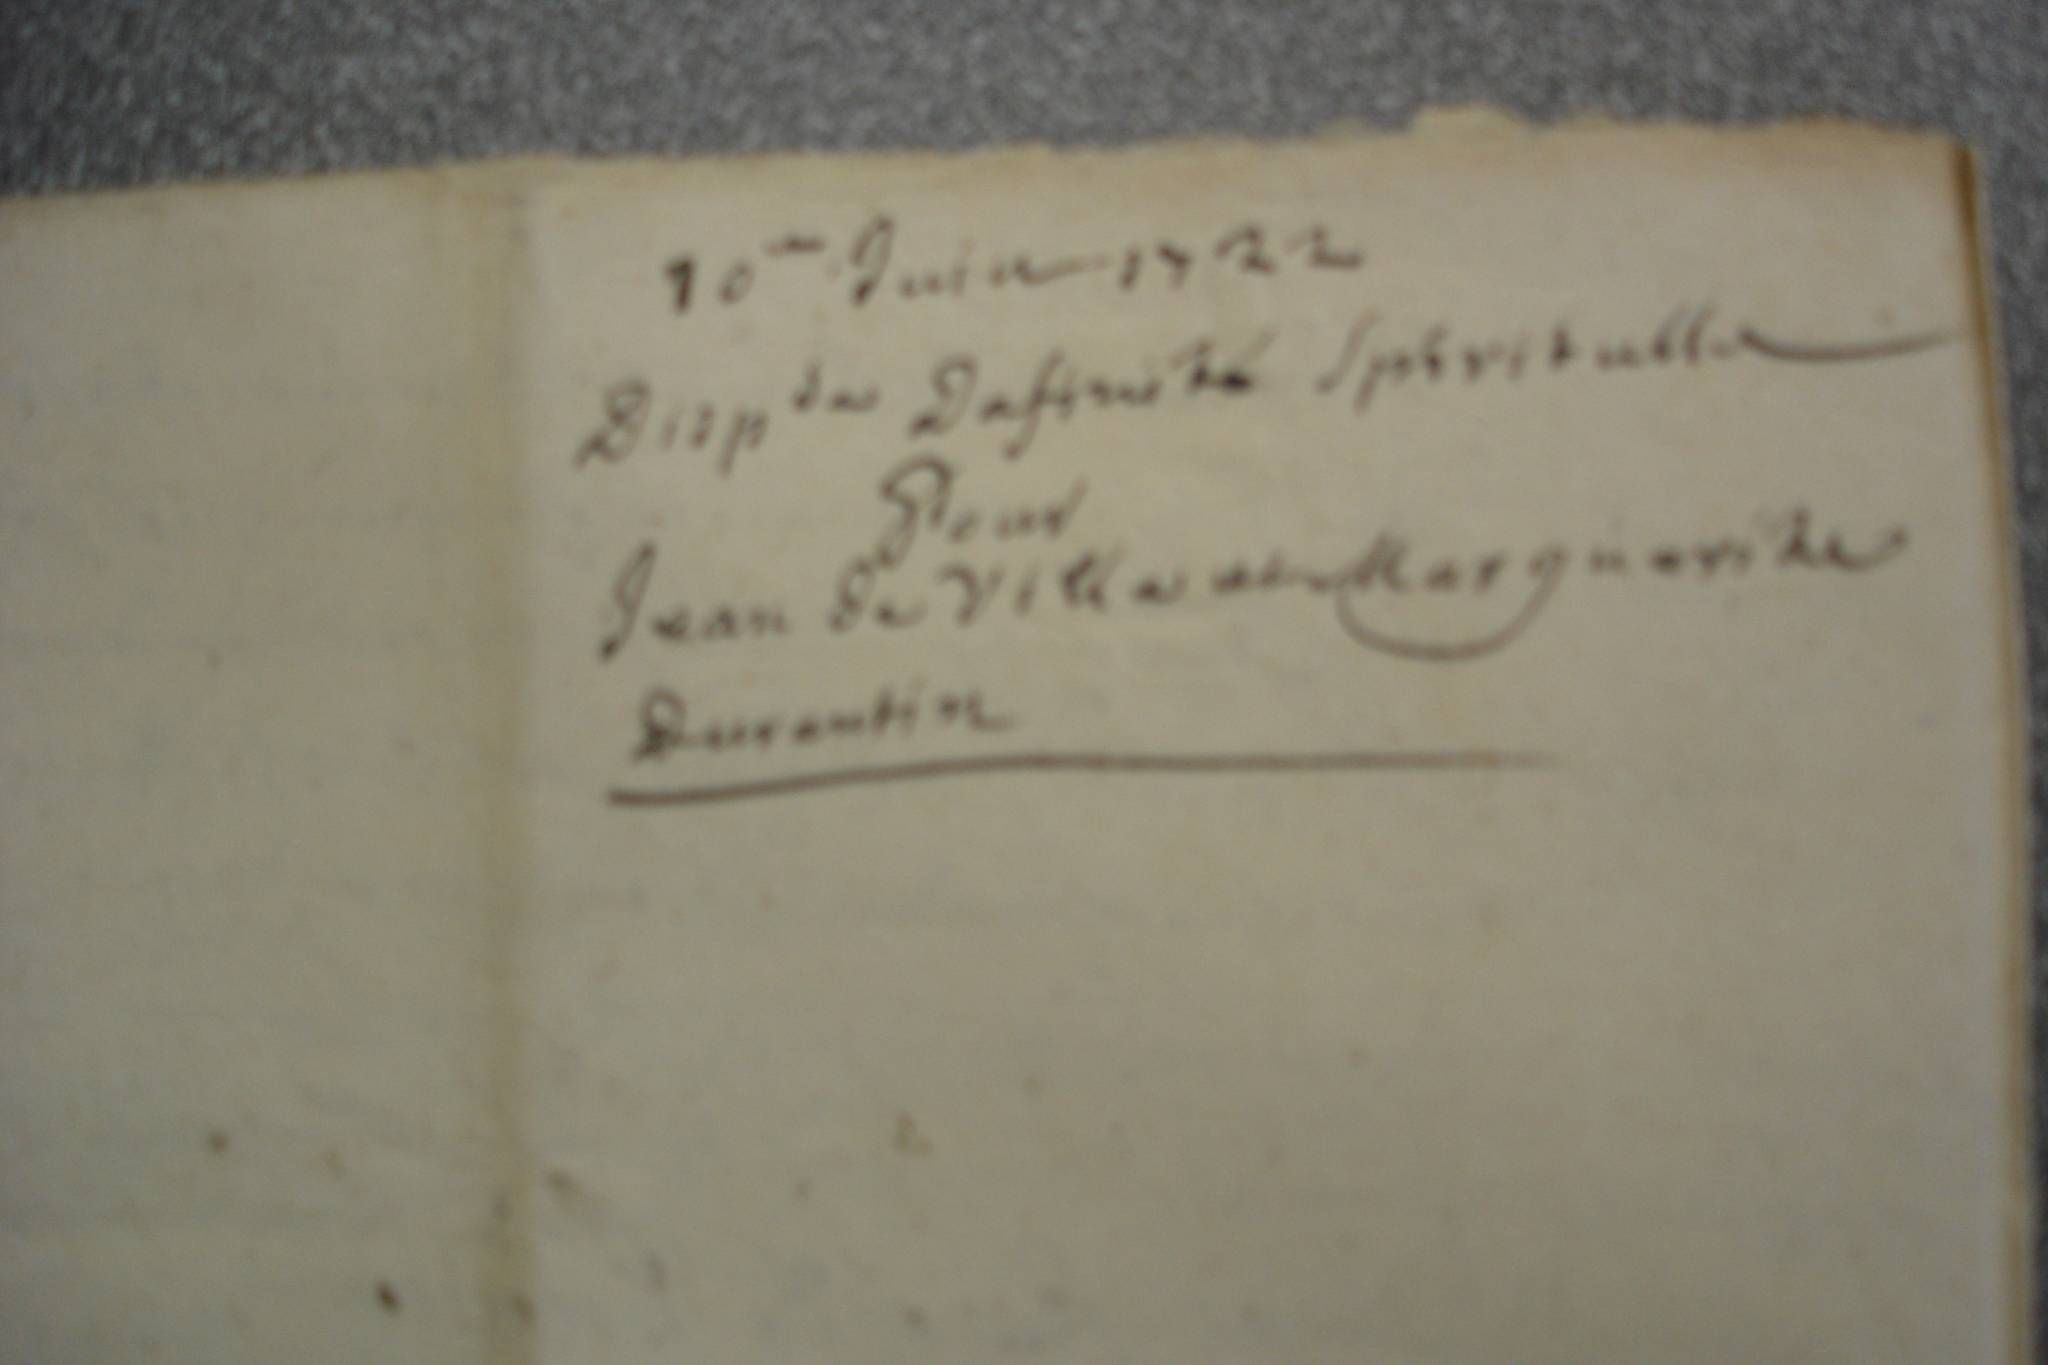 10me Juin 1722
Disp de Dafinité Sphrituelle
Pour
Jean de Ville Marguerite
Durantin